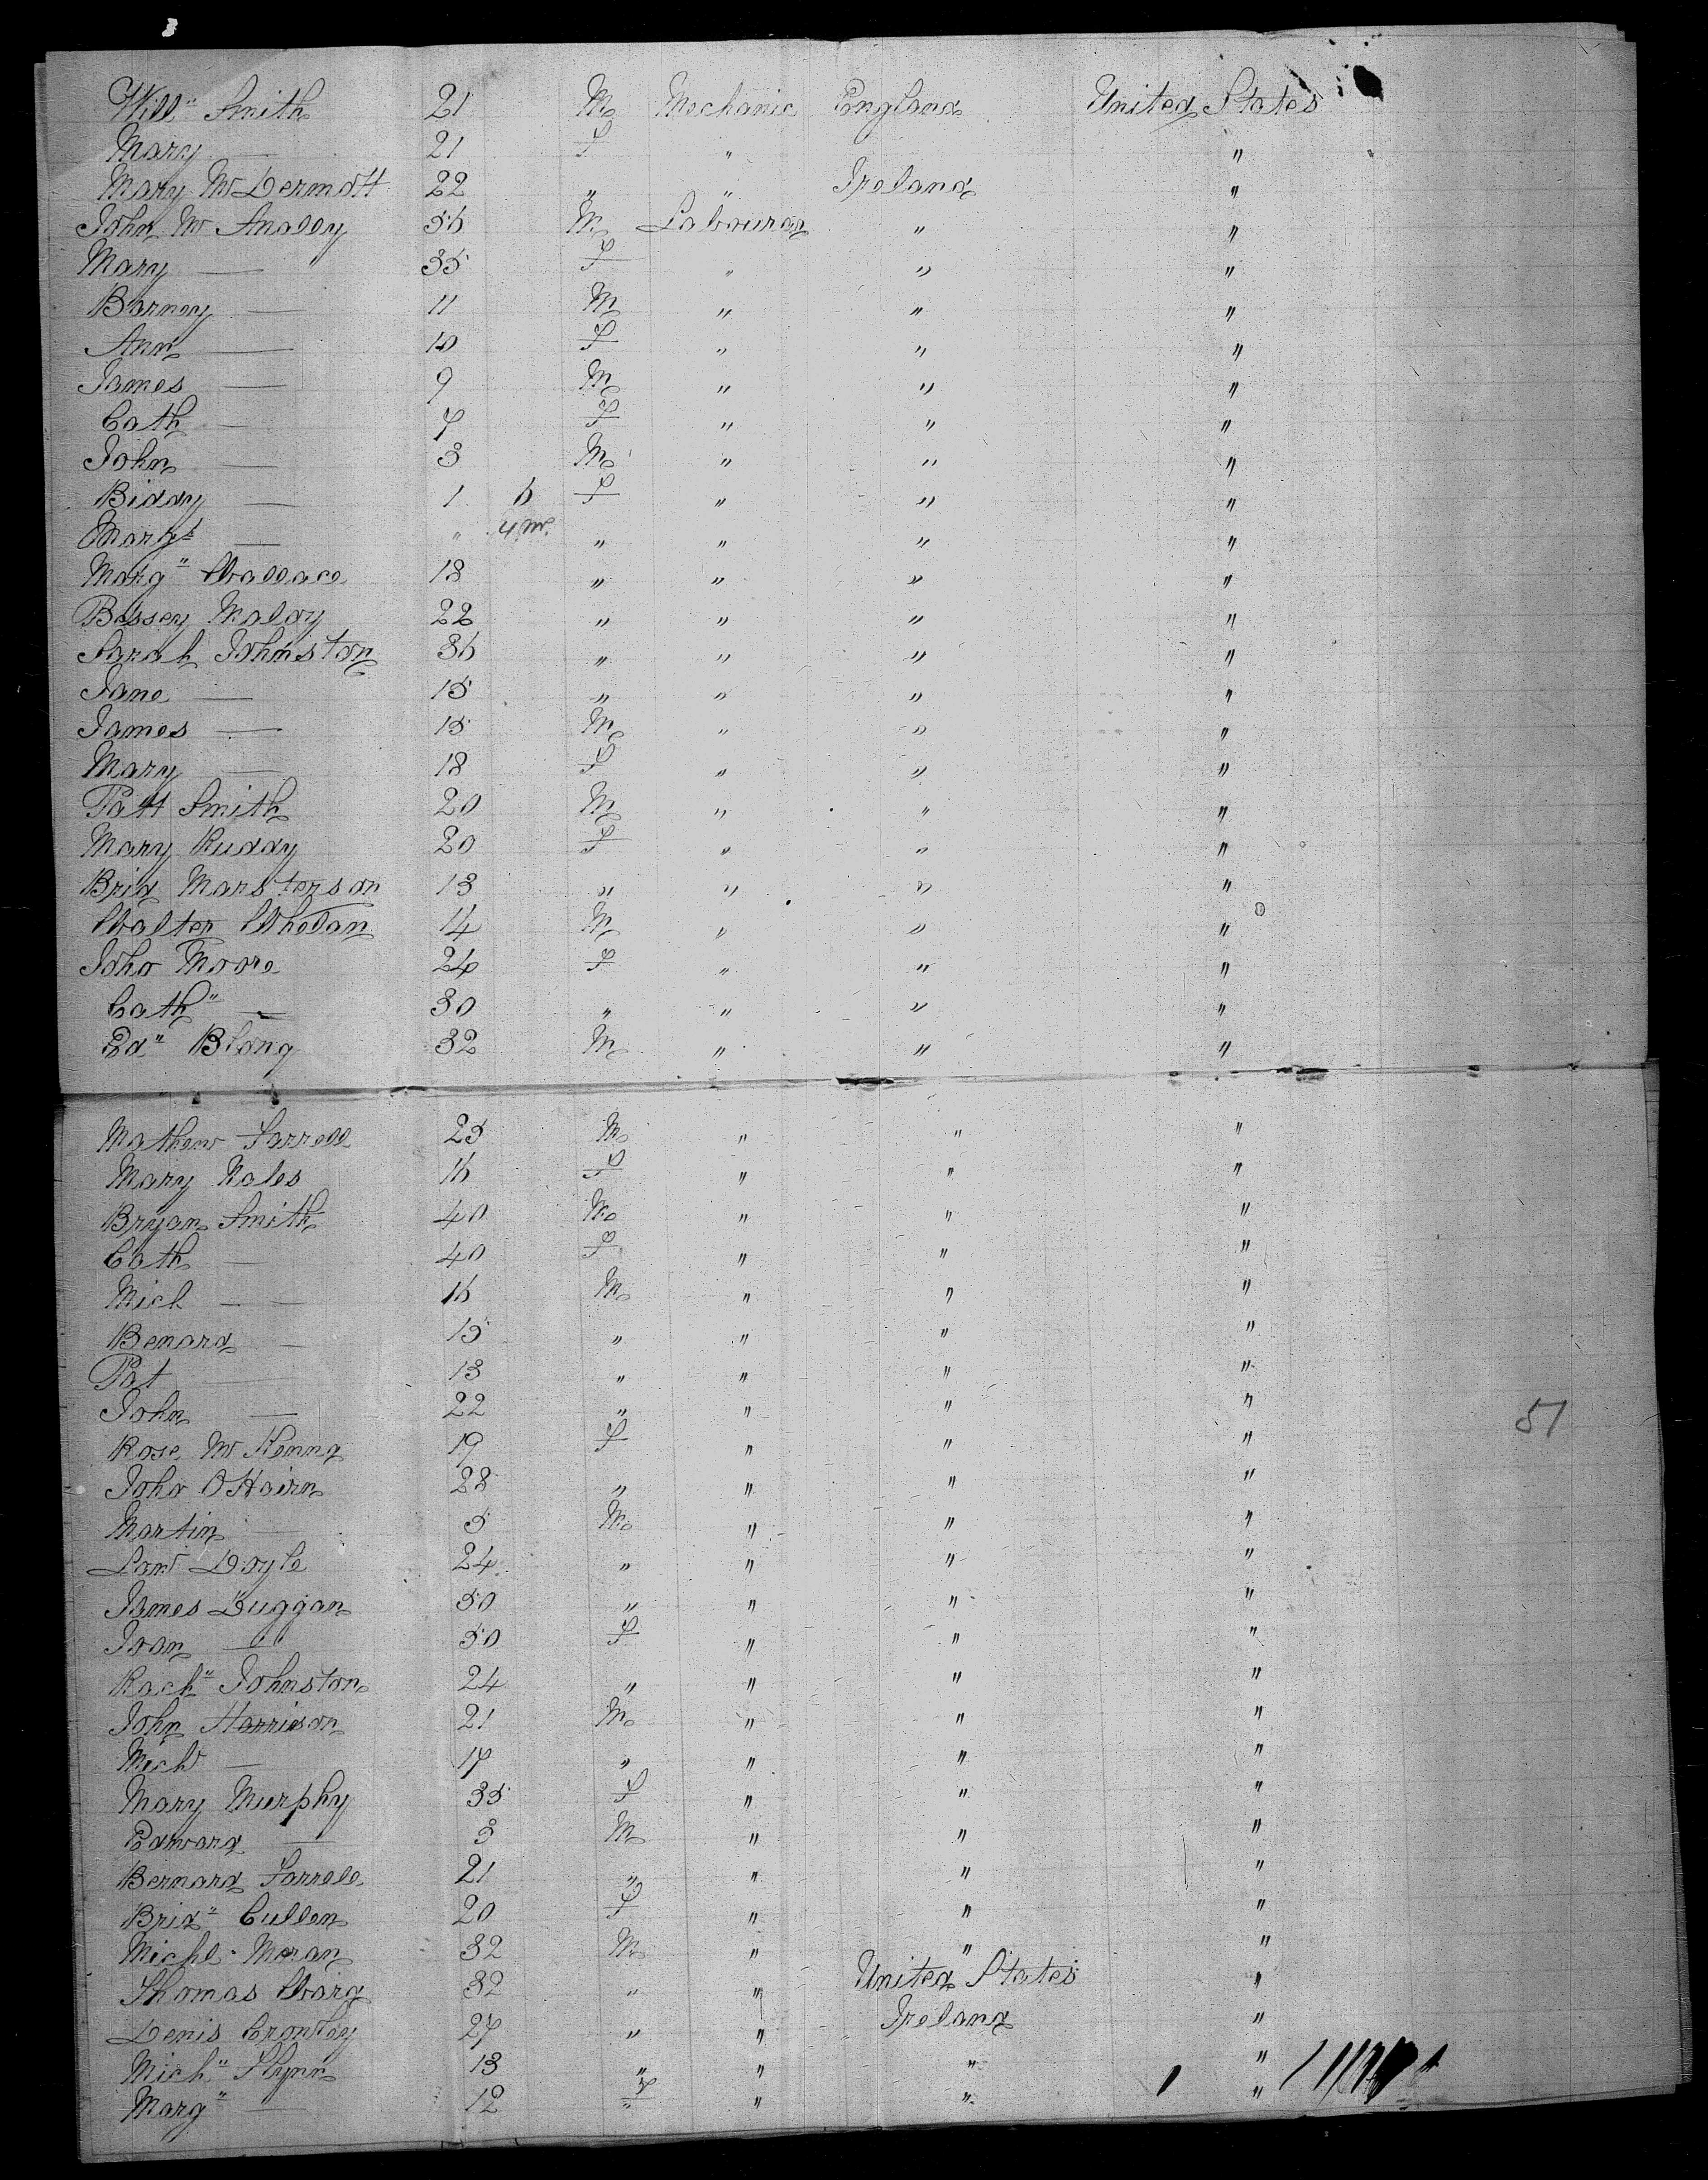 Will" Smith 21 M Mechanic England United States
Mary — 21 F " "
Mary McDermott 22 " " Ireland "
John McAnally 36 M Labourer " "
Mary — 35 F " " "
Barney — 11 M " " "
Ann — 10 F " " "
James — 9 M " " "
Cath — 7 F " " "
John — 3 M " " "
Biddy — 1 6 F " " "
Margt — " 4 m " " " "
Marg" Wallace 18 " " " "
Bessey Maloy 22 " " " "
Sarah Johnston 36 " " " "
Jane — 15 " " " "
James — 15 M " " "
Mary — 18 F " " "
Patt Smith 20 M " " "
Mary Ruddy 20 F " " "
Brid Marsterson 13 " " " "
Walter Whelan 14 M " " "
Joha Moore 24 F " " "
Cath" — 30 " " " "
Ed" Blong 32 M " " "
Mathew Farrell 25 M " " "
Mary Nales 16 F " " "
Bryan Smith 40 M " " "
Cath — 40 F " " "
Mich — 16 M " " "
Benard — 15 " " " "
Pat — 13 " " " "
John — 22 " " " "
51
Rose McKenna 19 F " " "
Joha OHairn 28 " " " "
Martin — 5 M " " "
Law Doyle 24 " " " "
James Duggan 50 " " " "
Joan — 50 F " " "
Rach" Johnston 24 " " " "
John Harrison 21 M " " "
Michl — 17 " " " "
Mary Murphy 35 F " " "
Edward — 3 M " " "
Bernard Farrell 21 " " " "
Brid" Cullen 20 F " " "
Michl Moran 32 M " " "
Thomas Ward 32 " " United States "
Denis Crowley 27 " " Ireland "
Mich" Flynn 13 " " " "
Marg" — 12 F " " "